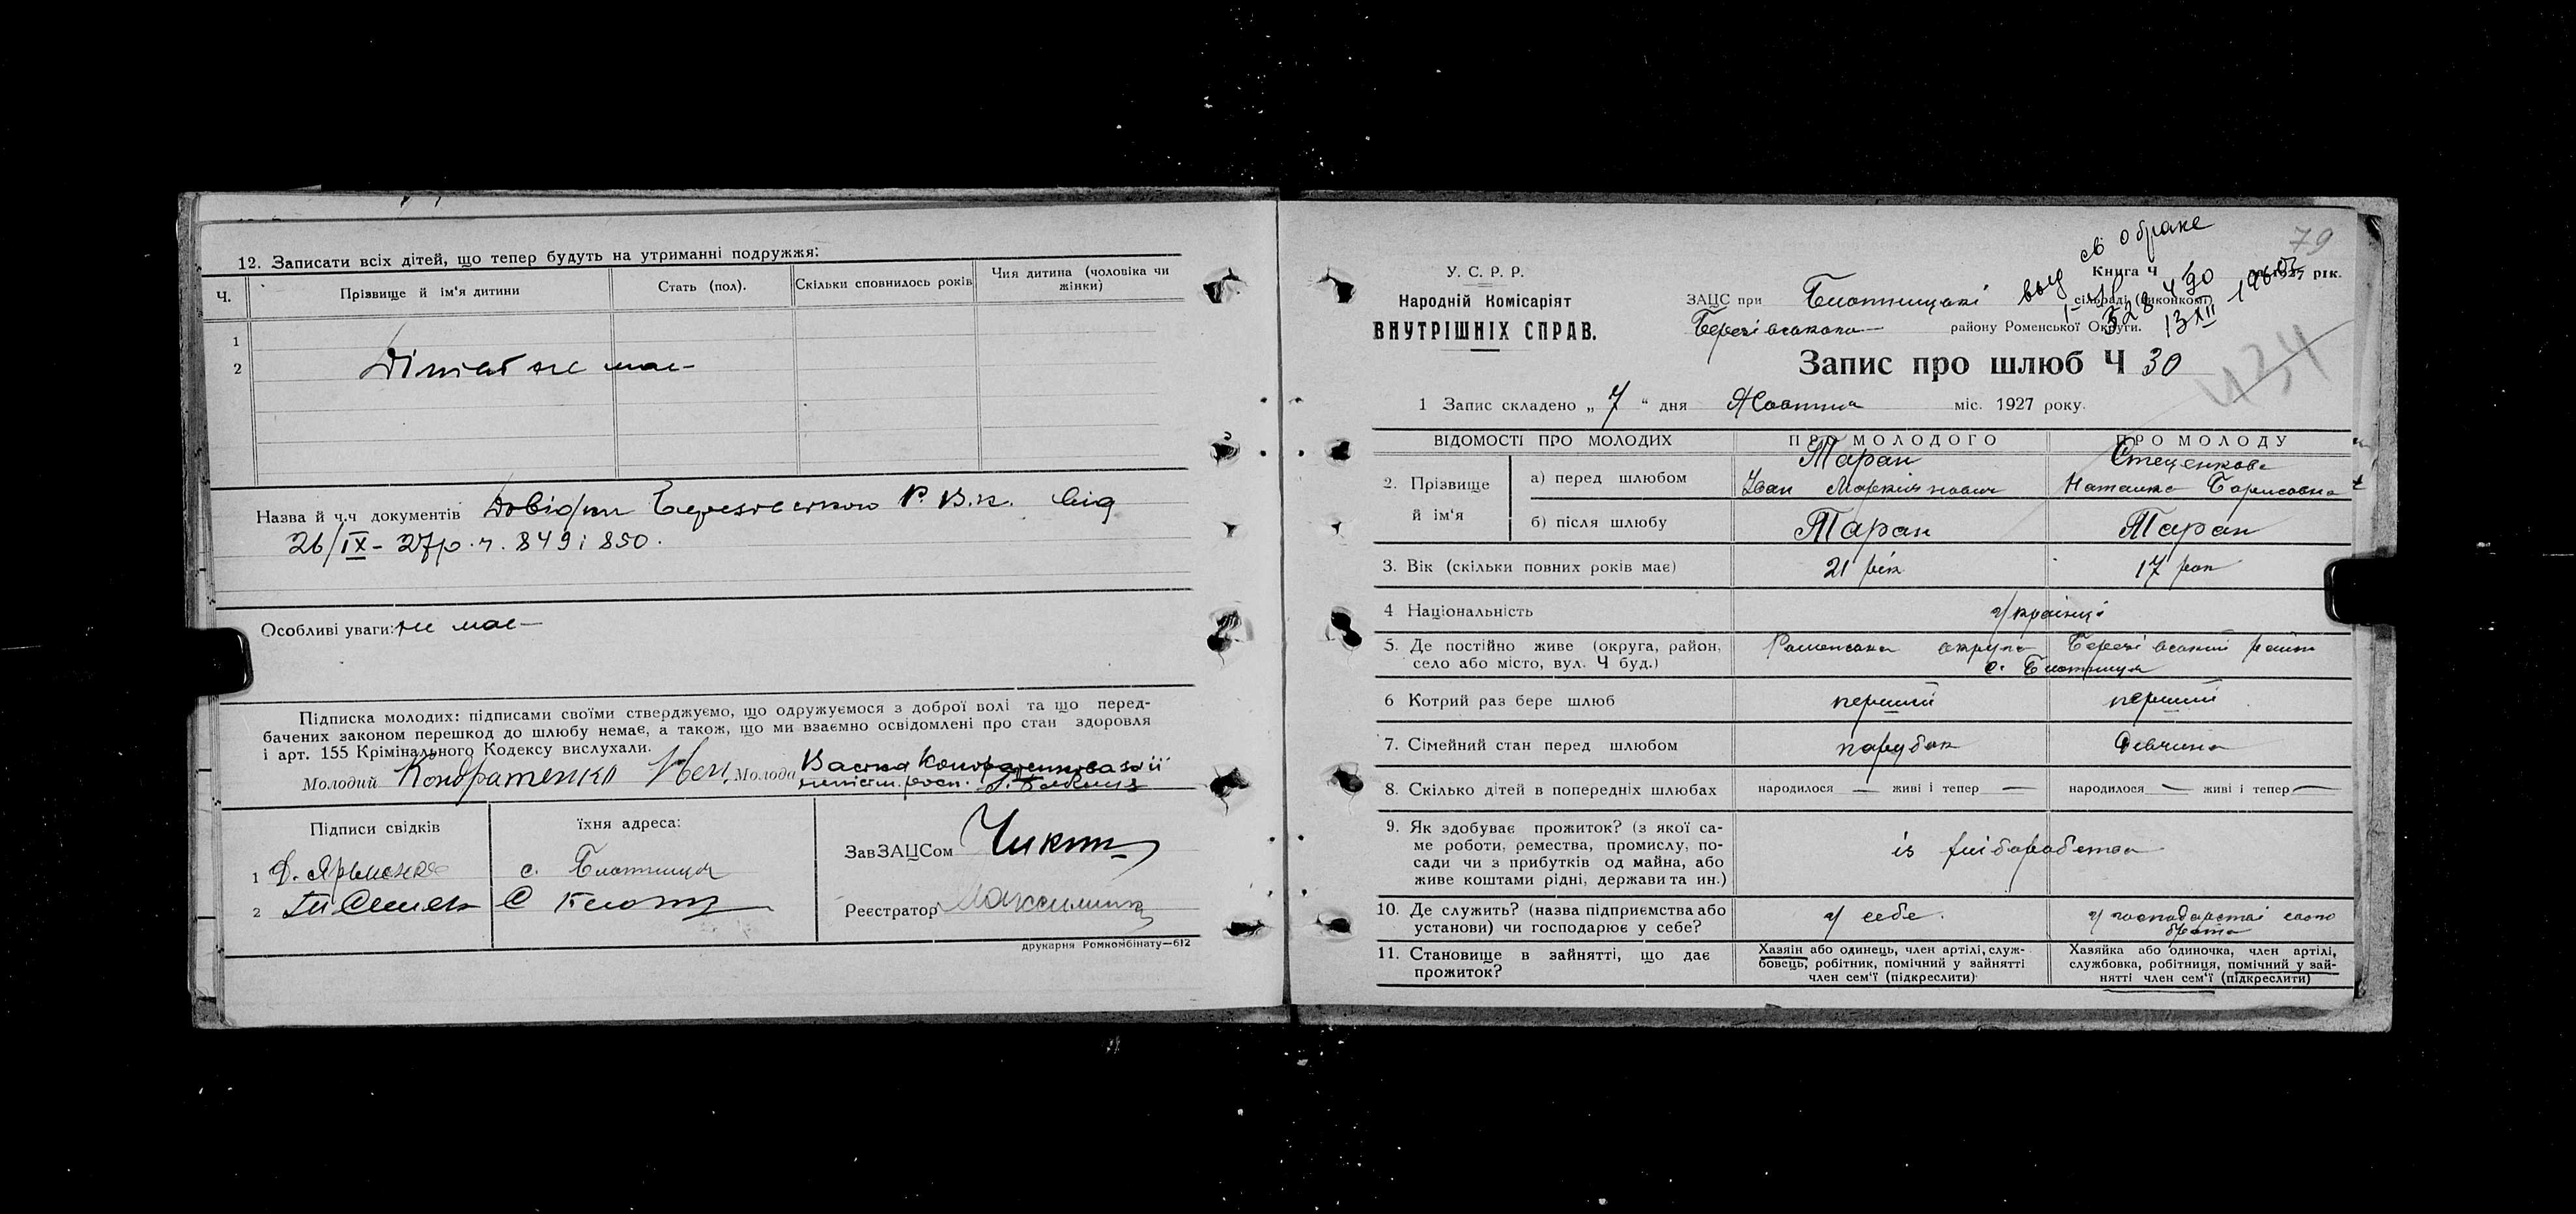 12. Записати всіх дітей, що тепер будуть на утриманні подружжя:
Ч. Прізвище й ім'я дитини Стать (пол). Скільки сповнилось років Чия дитина (чоловіка чи жінки)
1
2 Дітей не має
Назва й ч.ч документів Довідки Березівського Р.В.К. від
26/IX - 27 р. ч. 849 і 850.
Особливі уваги: не має
Підписка молодих: підписами своїми стверджуємо, що одружуємося з доброї волі та що перед-
бачених законом перешкод до шлюбу немає, а також, що ми взаємно освідомлені про стан здоровля
і арт. 155 Крімінального Кодексу вислухали.
Молодий Кондратенко Молода
Підписи свідків їхня адреса:
ЗавЗАЦСом
1 с. Блотниця
2 С
Реєстратор
друкарня Ромкомбінату—612
79
св о браке
У. С. Р. Р.
Народній Комісаріят
ВНУТРІШНІХ СПРАВ.
Книга Ч 1927 рік.
ЗАЦС при Блотницькі сільраді (виконкомі)
Березівського району Роменської Округи.
13 XII
Запис про шлюб Ч 30
1 Запис складено „ 7 “ дня Жовтня міс. 1927 року.
ВІДОМОСТІ ПРО МОЛОДИХ ПРО МОЛОДОГО ПРО МОЛОДУ
2. Прізвище й ім'я
а) перед шлюбом Таран Іван Стеценкова Наталка Борисовна
б) після шлюбу Таран Таран
3. Вік (скільки повних років має) 21 рік 17 рок
4 Національність Українці
5. Де постійно живе (округа, район, Роменська округа Березівський район
село або місто, вул. Ч буд.) с. Блотниця
6 Котрий раз бере шлюб перший перший
7. Сімейний стан перед шлюбом парубок Девчина
8. Скілько дітей в попередніх шлюбах народилося — живі і тепер — народилося — живі і тепер —
9. Як здобуває прожиток? (з якої са-
ме роботи, ремества, промислу, по-
сади чи з прибутків од майна, або
живе коштами рідні, держави та ин.)
із хліборобства
10. Де служить? (назва підприємства або у себе. у господарстві свого
установи) чи господарює у себе? брата
11. Становище в зайнятті, що дає прожиток?
Хазяін або одинець, член артілі, служ-
бовець, робітник, помічний у зайнятті
член сем'ї (підкреслити)
Хазяйка або одиночка, член артілі,
службовка, робітниця, помічний у зай-
нятті член сем'ї (підкреслити)